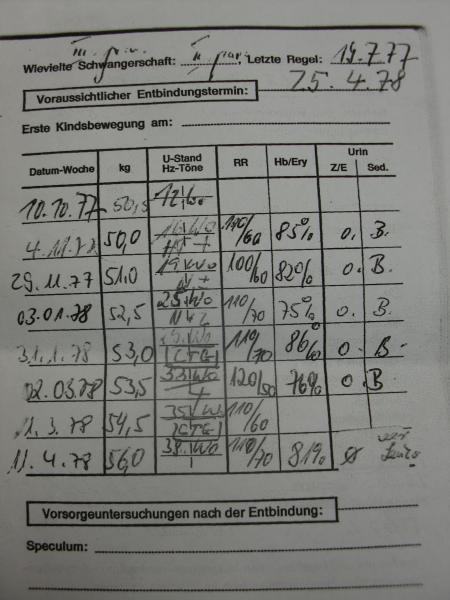 III. grav. II. para
Wievielte Schwangerschaft: Letzte Regel: 19.7.77
Voraussichtlicher Entbindungstermin: 25.4.78
Erste Kindsbewegung am:
Datum-Woche kg U-Stand Hz-Töne RR Hb/Ery Urin Z/E Sed.
10.10.77 50,5 12.Wo
4.11.77 50,0 110/60 85% 0. B.
29.11.77 51.0 19.Wo 100/60 82% 0. B.
03.01.78 52,5 25.Wo 110/70 75% 0. B.
31.1.78 53,0 CTG 110/70 86% 0 B.
02.03.78 53,5 33.Wo 120/50 76% 0. B
11.3.78 54,5 35.Wo CTG 110/60
11.4.78 56,0 38.Wo 110/70 81% ø
Vorsorgeuntersuchungen nach der Entbindung:
Speculum: